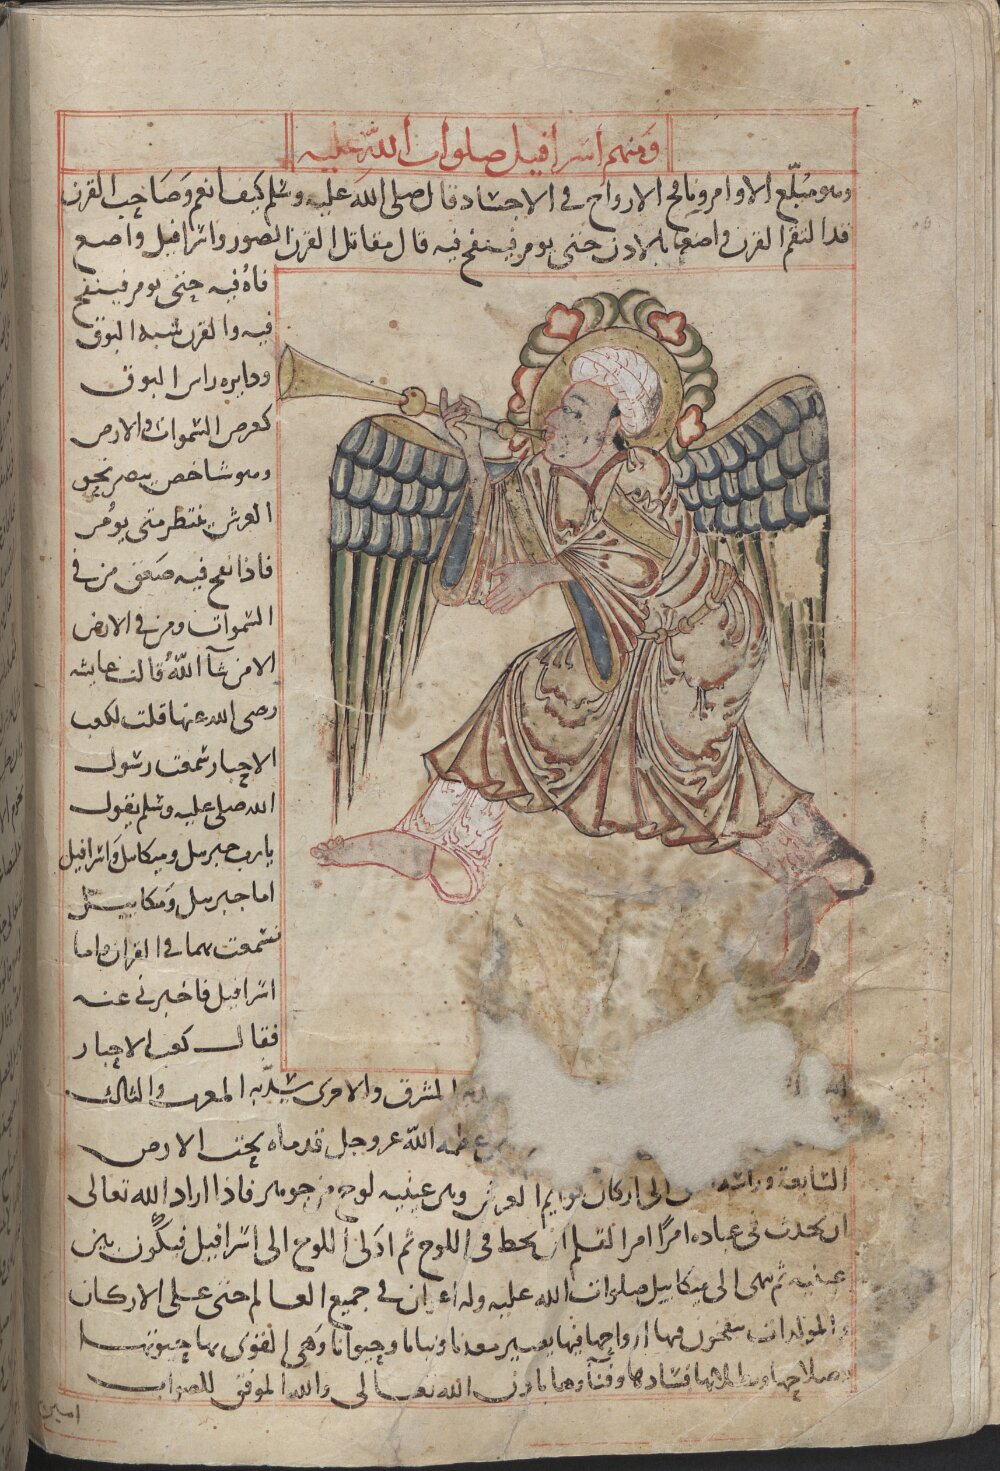 ومنهم اسرافيل صلوات الله عليه
وهو مبلّغ الاوامر ونافخ الارواح في الاجساد قال صلى الله عليه وسلم كيف انعم وصاحب القرن
قد التقم القرن واصغى بالاذن حتى يومر فينفخ فيه قال مقاتل القرن الصور واسرافيل واضع
فاه فيه حتى يومر فينفخ
فيه والقرن شبه البوق
ودايره راس البوق
كعرض السموات والارض
وهو شاخص ببصره نحو
العرش ينتظر متى يومر
فاذا نفخ فيه صعق من في
السموات ومن في الارض
الا من شآ الله قالت عايشه
رضى الله عنها قلت لكعب
الاحبار سمعت رسول
الله صلى عليه وسلم يقول
يا رب جبريل وميكايل واسرافيل
اما جبريل وميكاييل
فسمعت بهما في القران واما
اسرافيل فاخبرني عنه
فقال كعب الاحبار
المشرق والاخرى سدّ به المغرب والثالث
عظمه الله عز وجل قدماه تحت الارض
السابعة وراسه الى اركان قوايم العرش وبين عينيه لوح من جوهر فاذا اراد الله تعالى
ان يحدث في عباده امرًا امر القلم ان يخط في اللوح ثم ادلى اللوح الى اسرافيل فيكون بين
عينيه ثم ينتهى الى ميكاييل صلوات الله عليه وله اعوان في جميع العالم حتى على الاركان
والمولدات ينفخون فيها ارواحها فيها يصير معدنا ونباتا وحيوانا وهي القوى بها حيوتها
صلاحها فسادها وفنآوها باذن الله تعالى والله الموفق للصواب
امين